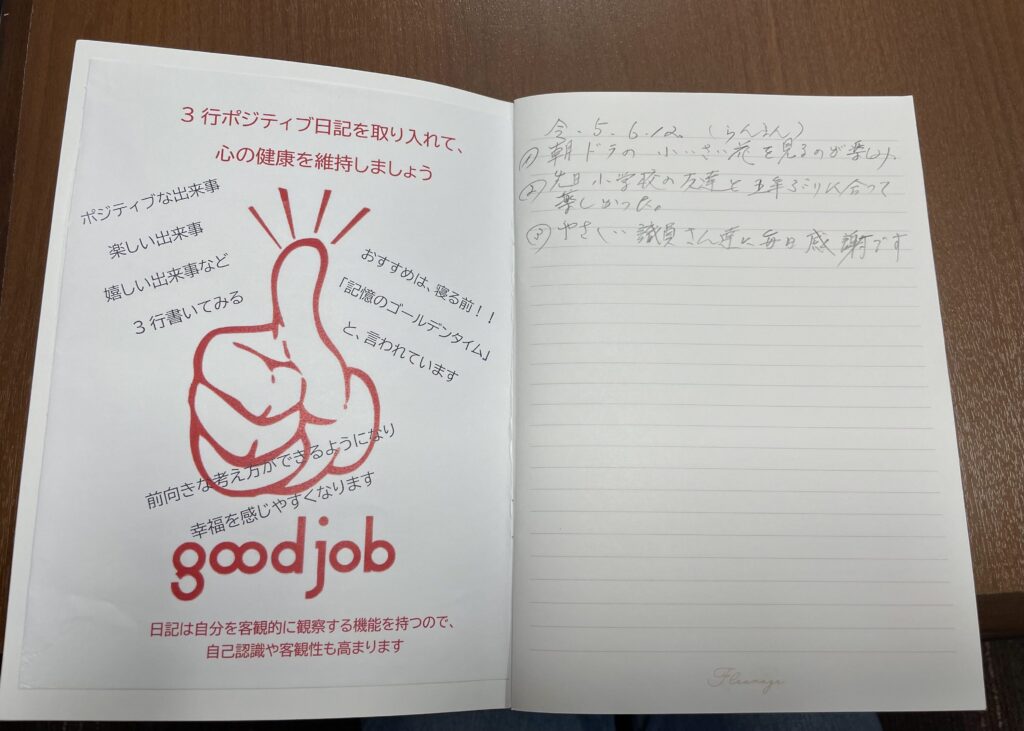 3行ポジティブ日記を取り入れて、
心の健康を維持しましょう
ポジティブな出来事
楽しい出来事
嬉しい出来事など
3行書いてみる
おすすめは、寝る前！！
「記憶のゴールデンタイム」
と、言われています
前向きな考え方ができるようになり
幸福を感じやすくなります
good job
日記は自分を客観的に観察する機能を持つので、
自己認識や客観性も高まります
令.5.6.12.（らんまん）
① 朝ドラの 小いさい花を見るのが楽しみ
② 先日小学校の友達と五年ぶりに合って
楽しかった。
③ やさしい職員さん達に毎日感謝です